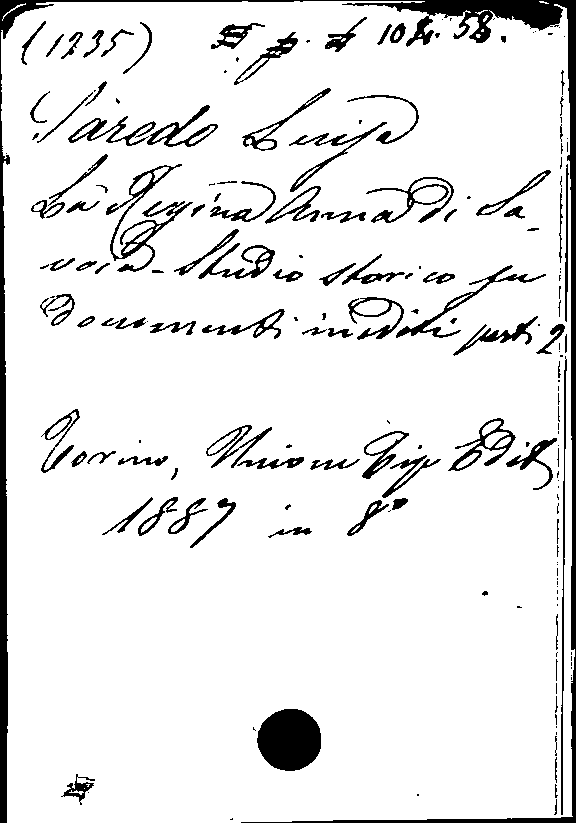 (1235) 108. 58.
Saredo Luisa
La Regina Anna di Sa-
voia - Studio storico su
documenti inediti parti 2
Torino, Unione Tip Edit
1887 in 8°